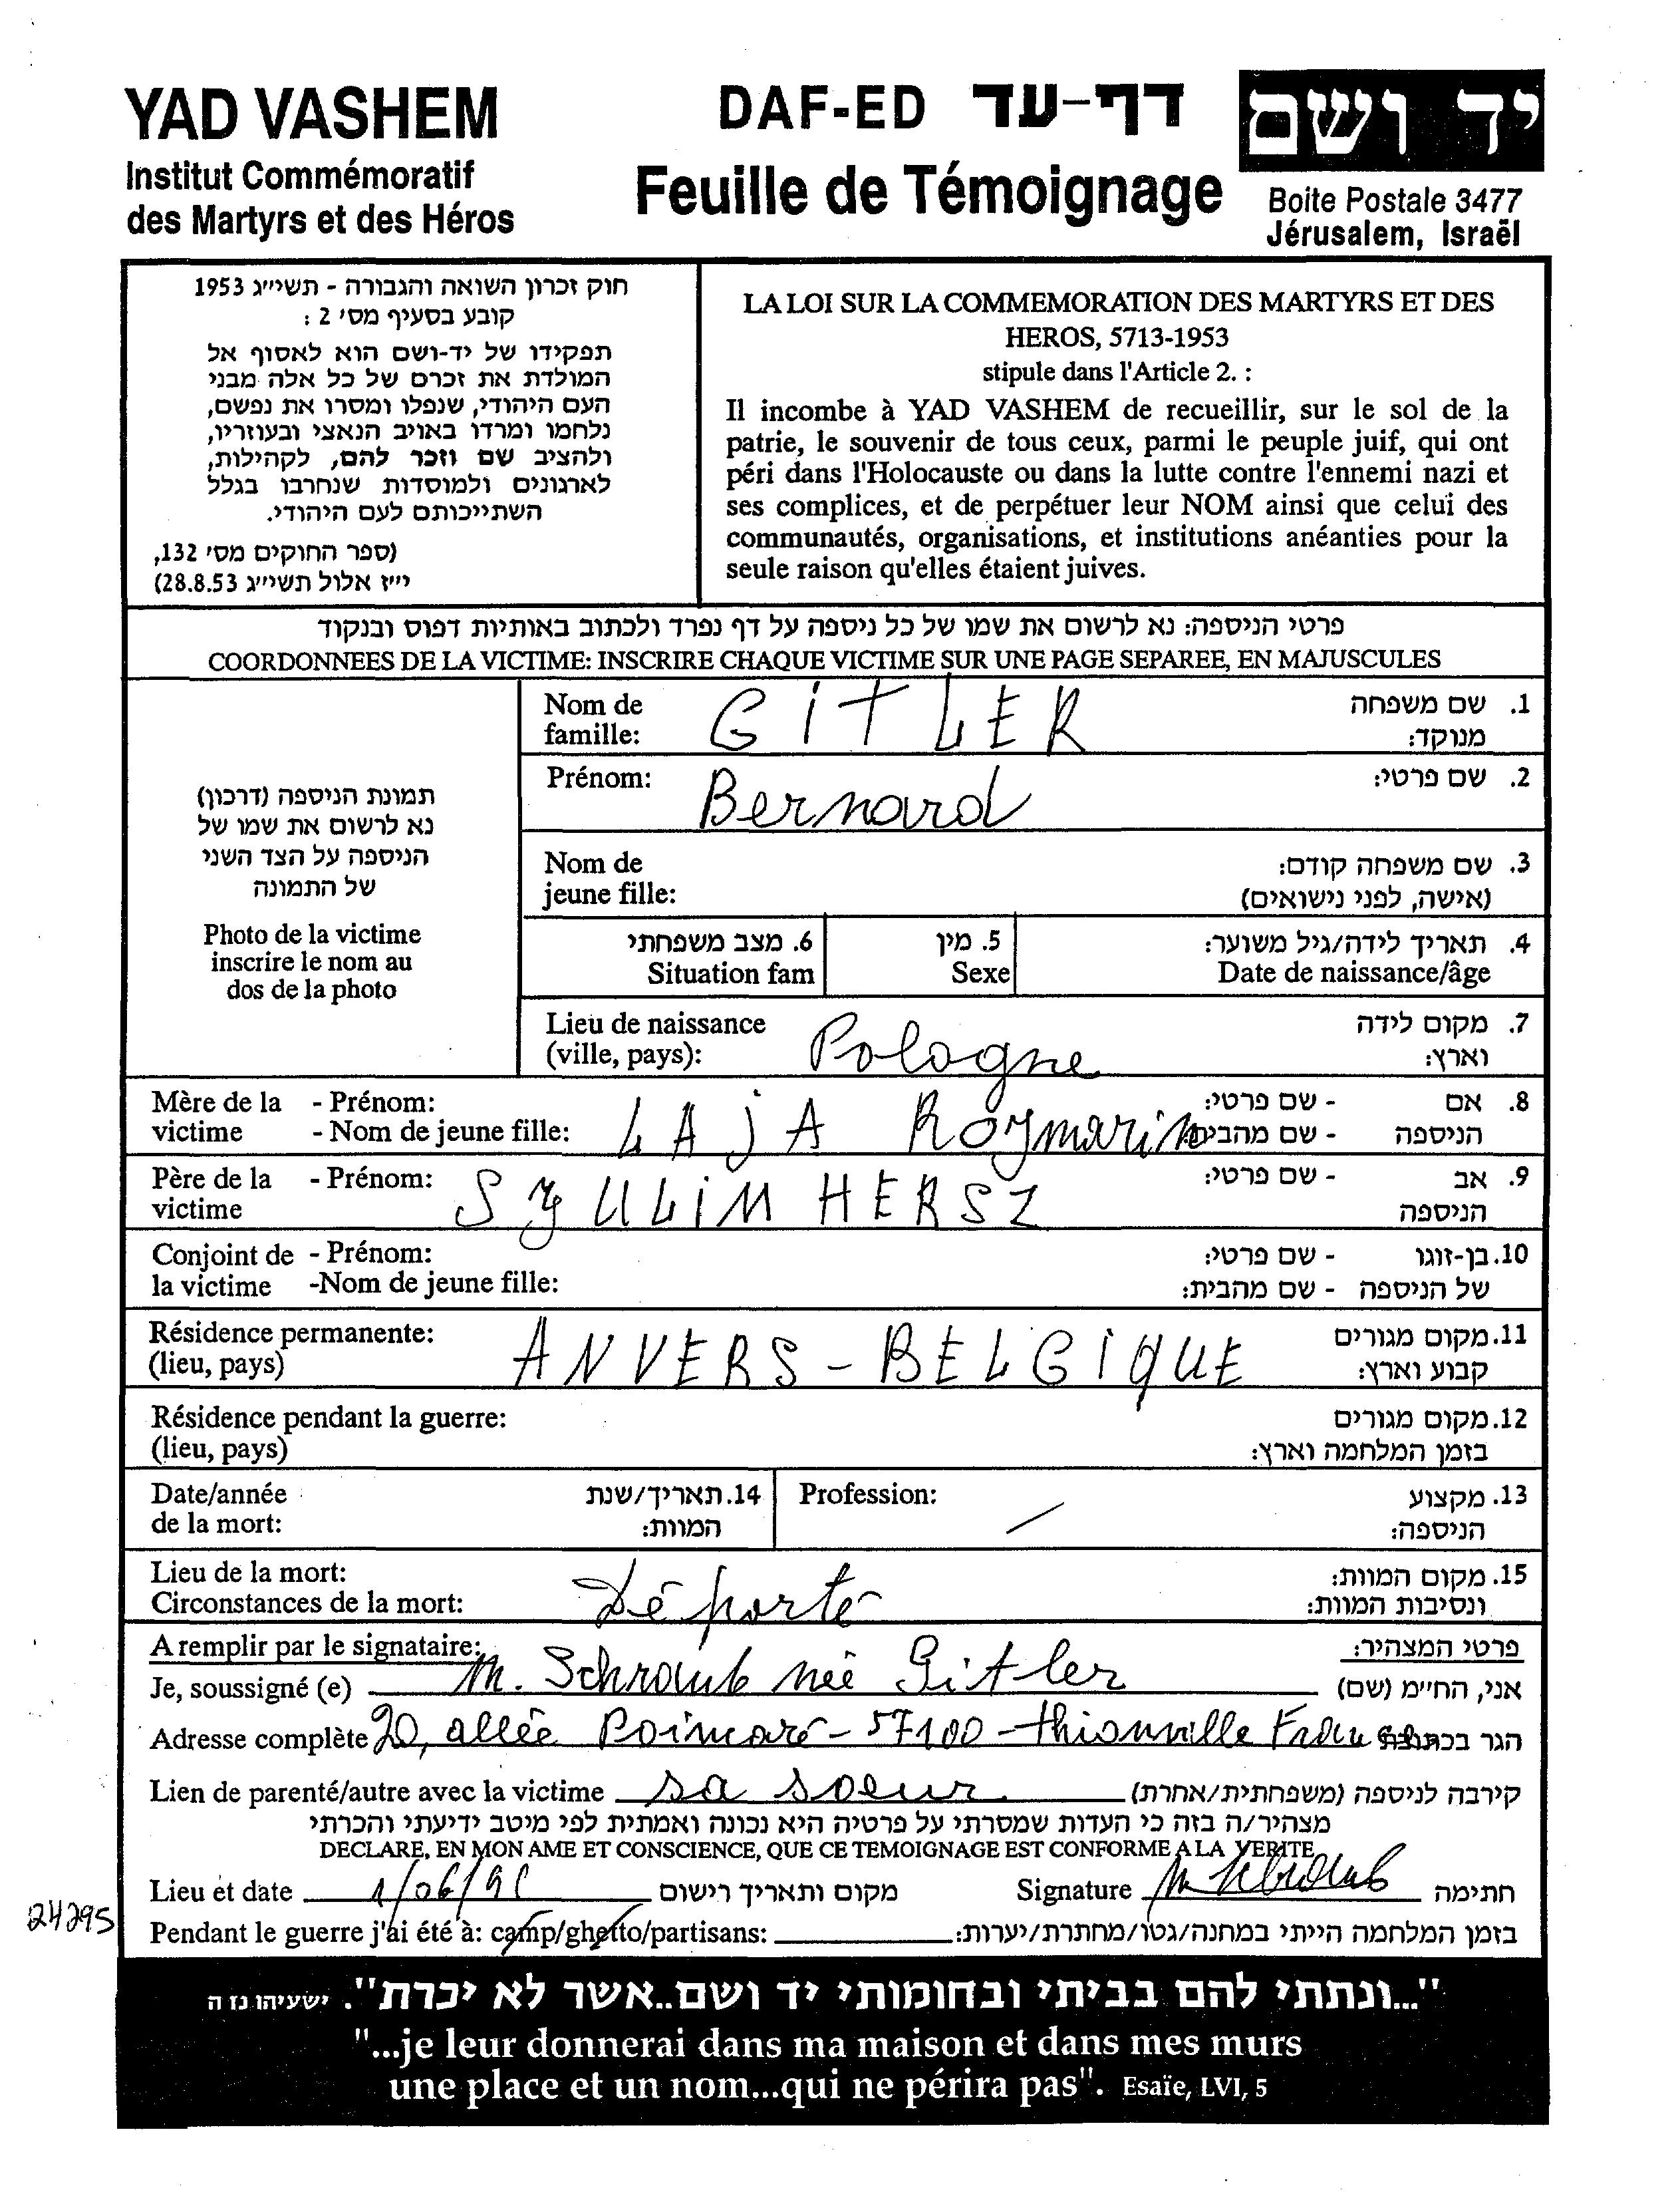 YAD VASHEM
Institut Commémoratif
des Martyrs et des Héros
DAF-ED דף-עד
Feuille de Témoignage
יד ושם
Boite Postale 3477
Jérusalem, Israël
חוק זכרון השואה והגבורה - תשי״ג 1953
קובע בסעיף מס׳ 2 :
תפקידו של יד-ושם הוא לאסוף אל
המולדת את זכרם של כל אלה מבני
העם היהודי, שנפלו ומסרו את נפשם,
נלחמו ומרדו באויב הנאצי ובעוזריו,
ולהציב שם וזכר להם, לקהילות,
לארגונים ולמוסדות שנחרבו בגלל
השתייכותם לעם היהודי.
(ספר החוקים מס׳ 132,
י״ז אלול תשי״ג 28.8.53)
LA LOI SUR LA COMMEMORATION DES MARTYRS ET DES
HEROS, 5713-1953
stipule dans l'Article 2. :
Il incombe à YAD VASHEM de recueillir, sur le sol de la
patrie, le souvenir de tous ceux, parmi le peuple juif, qui ont
péri dans l'Holocauste ou dans la lutte contre l'ennemi nazi et
ses complices, et de perpétuer leur NOM ainsi que celui des
communautés, organisations, et institutions anéanties pour la
seule raison qu'elles étaient juives.
פרטי הניספה: נא לרשום את שמו של כל ניספה על דף נפרד ולכתוב באותיות דפוס ובנקוד
COORDONNEES DE LA VICTIME: INSCRIRE CHAQUE VICTIME SUR UNE PAGE SEPAREE, EN MAJUSCULES
תמונת הניספה (דרכון)
נא לרשום את שמו של
הניספה על הצד השני
של התמונה
Photo de la victime
inscrire le nom au
dos de la photo
Nom de GITLER 1. שם משפחה
famille: מנוקד:
Prénom: Bernard 2. שם פרטי:
Nom de 3. שם משפחה קודם:
jeune fille: (אישה, לפני נישואים)
6. מצב משפחתי 5. מין 4. תאריך לידה/גיל משוער:
Situation fam Sexe Date de naissance/âge
Lieu de naissance Pologne 7. מקום לידה
(ville, pays): וארץ:
Mère de la - Prénom: - שם פרטי: 8. אם
victime - Nom de jeune fille: LAJA Rozmarin - שם מהבית: הניספה
Père de la - Prénom: SZULIM HERSZ - שם פרטי: 9. אב
victime הניספה
Conjoint de - Prénom: - שם פרטי: 10. בן-זוגו
la victime -Nom de jeune fille: - שם מהבית: של הניספה
Résidence permanente: ANVERS - BELGIQUE 11. מקום מגורים
(lieu, pays) קבוע וארץ:
Résidence pendant la guerre: 12. מקום מגורים
(lieu, pays) בזמן המלחמה וארץ:
Date/année 14. תאריך/שנת Profession: / 13. מקצוע
de la mort: המוות: הניספה:
Lieu de la mort: 15. מקום המוות:
Circonstances de la mort: Déporté ונסיבות המוות:
A remplir par le signataire: פרטי המצהיר:
Je, soussigné (e) M. Schraub née Gitler אני, החיימ (שם)
Adresse complète 20, allée Poincaré - 57100 - Thionville הגר בכתובת
Lien de parenté/autre avec la victime sa soeur קירבה לניספה (משפחתית/אחרת)
מצהיר/ה בזה כי העדות שמסרתי על פרטיה היא נכונה ואמתית לפי מיטב ידיעתי והכרתי
DECLARE, EN MON AME ET CONSCIENCE, QUE CE TEMOIGNAGE EST CONFORME A LA VERITE
Lieu et date מקום ותאריך רישום Signature M Schraub חתימה
24295
Pendant le guerre j'ai été à: camp/ghetto/partisans: בזמן המלחמה הייתי במחנה/גטו/מחתרת/יערות:
"...ונתתי להם בביתי ובחומותי יד ושם..אשר לא יכרת". ישעיהו נז ה
"...je leur donnerai dans ma maison et dans mes murs
une place et un nom...qui ne périra pas". Esaïe, LVI, 5